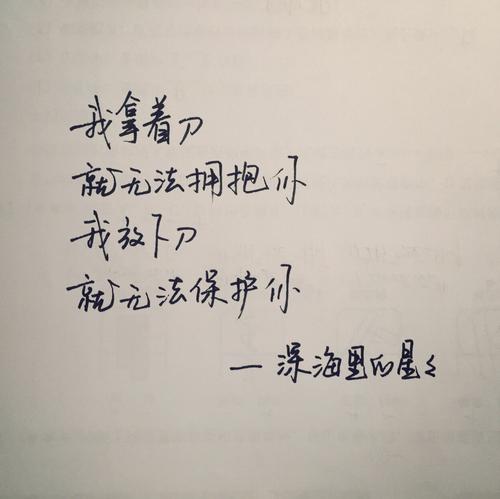 我拿着刀
就无法拥抱你
我放下刀
就无法保护你
— 深海里的星々